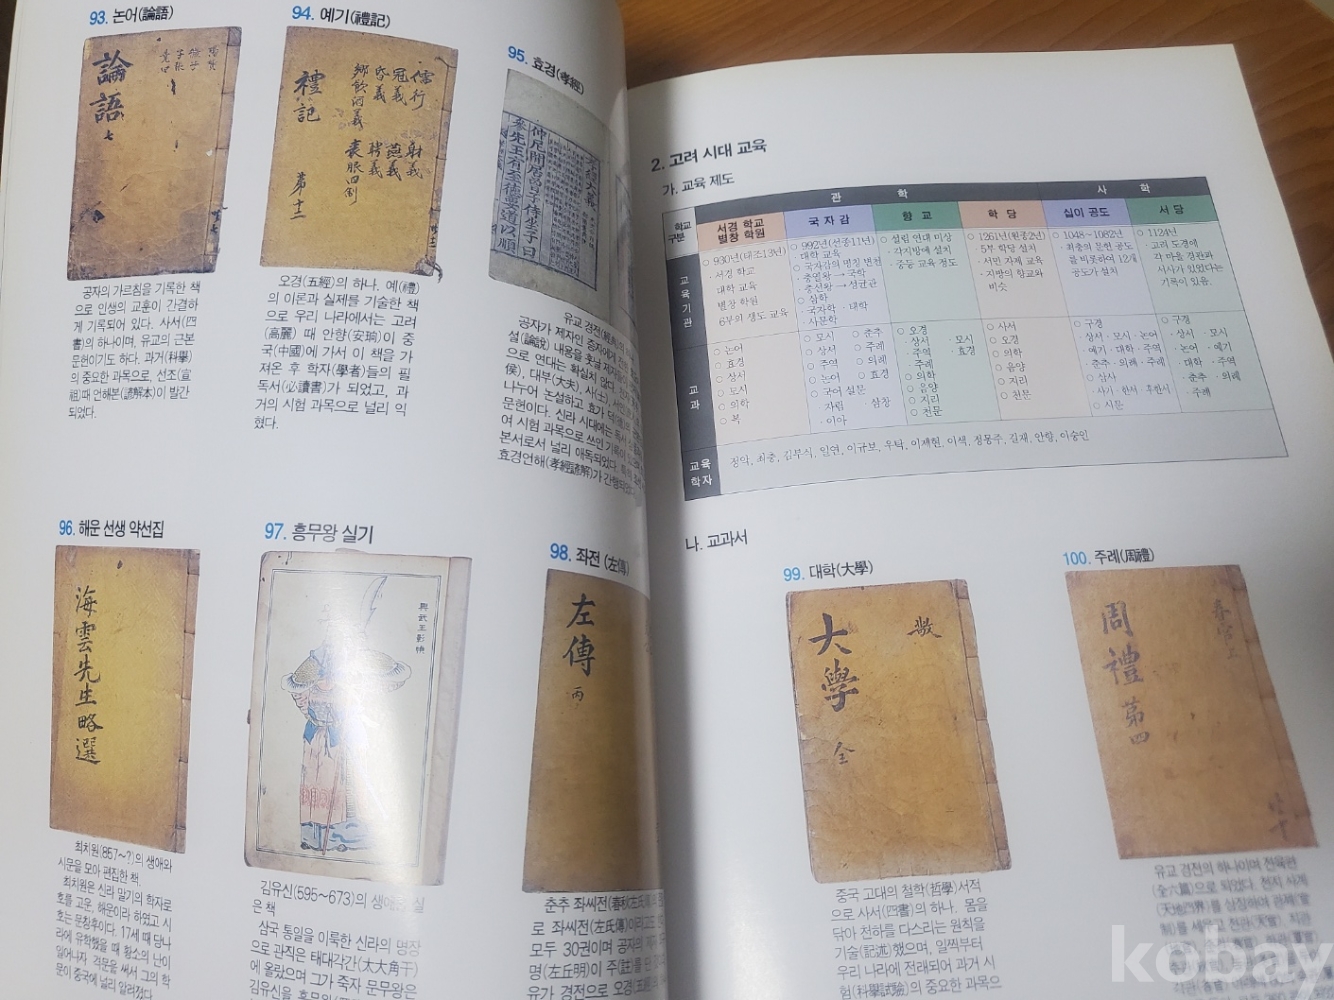 93. 논어(論語)
論語 七
공자의 가르침을 기록한 책
으로 인생의 교훈이 간결하
게 기록되어 있다. 사서(四
書)의 하나이며, 유교의 근본
문헌이기도 하다. 과거(科擧)
의 중요한 과목으로, 선조(宣
祖)때 언해본(諺解本)이 발간
되었다.
94. 예기(禮記)
禮記
儒行
冠義
昏義
鄕飮酒義
射義
燕義
聘義
喪服四制
第十二
오경(五經)의 하나. 예(禮)
의 이론과 실제를 기술한 책
으로 우리 나라에서는 고려
(高麗) 때 안향(安珦)이 중
국(中國)에 가서 이 책을 가
져온 후 학자(學者)들의 필
독서(必讀書)가 되었고, 과
거의 시험 과목으로 널리 익
혔다.
95. 효경(孝經)
仲尼閒居曾子侍坐子曰
參先王有至德要道以順
유교 경전(經典)의
공자가 제자인 증자에게 전한
설(論說) 내용을 훗날 제자들이
으로 연대는 확실치 않다.
侯), 대부(大夫), 사(士),
나누어 논설하고 효가 덕의
문헌이다. 신라 시대에는 독서
여 시험 과목으로 쓰인 기록이
본서로서 널리 애독되었다.
효경언해(孝經諺解)가 간행되었다
96. 해운 선생 약선집
海雲先生略選
최치원(857~?)의 생애와
시문을 모아 편집한 책.
최치원은 신라 말기의 학자로
호를 고운, 해운이라 하였고 시
호는 문창후이다. 17세 때 당나
라에 유학했을 때 황소의 난이
일어나자 격문을 써서 그의 학
문이 중국에 널리 알려졌다.
97. 흥무왕 실기
興武王影幀
김유신(595~673)의 생애
은 책
삼국 통일을 이룩한 신라의 명장
으로 관직은 태대각간(太大角干)
에 올랐으며 그가 죽자 문무왕은
김유신을 흥무왕
98. 좌전 (左傳)
左傳 丙
춘추 좌씨전(春秋左氏傳)
로 좌씨전(左氏傳)이라고도
모두 30권이며 공자의
명(左丘明)이 주(註)를
유가 경전으로 오경(五經)
2. 고려 시대 교육
가. 교육 제도
학교 구분
관 학
사 학
서경 학교 별창 학원
국 자 감
향 교
학 당
십이 공도
서 당
교육기관
○ 930년(태조13년)
· 서경 학교
대학 교육
· 별창 학원
6부의 생도 교육
○ 992년(선종11년)
대학 교육
○ 국자감의 명칭 변천
· 충열왕 → 국학
· 충선왕 → 성균관
○ 삼학
· 국자학 · 대학
· 사문학
○ 설립 연대 미상
· 각지방에 설치
· 중등 교육 정도
○ 1261년(원종2년)
5부 학당 설치
· 서민 자제 교육
· 지방의 향교와
비슷
○ 1048~1082년
· 최충의 문헌 공도
를 비롯하여 12개
공도가 설치
○ 1124년
· 고려 도경에
각 마을 경관과
서사가 있었다는
기록이 있음.
교과
○ 논어
○ 효경
○ 상서
○ 모시
○ 의학
○ 복
○ 모시 ○ 춘추
○ 상서 ○ 주례
○ 주역 ○ 의례
○ 논어 ○ 효경
○ 국어 설문
· 자림 · 삼창
· 이아
○ 오경
상서 · 모시
· 주역 · 효경
· 주례
○ 의학
○ 음양
○ 지리
○ 천문
○ 사서
○ 오경
○ 의학
○ 음양
○ 지리
○ 천문
○ 구경
· 상서 · 모시 · 논어
· 예기 · 대학 · 주역
· 춘추 · 의례 · 주례
○ 삼사
· 사기 · 한서 · 후한서
○ 시문
○ 구경
· 상서 · 모시
· 논어 · 예기
· 대학 · 주역
· 춘추 · 의례
· 주례
교육 학자
정악, 최충, 김부식, 일연, 이규보, 우탁, 이제현, 이색, 정몽주, 길재, 안향, 이숭인
나. 교과서
99. 대학(大學)
大學 全
중국 고대의 철학(哲學)서적
으로 사서(四書)의 하나. 몸을
닦아 천하를 다스리는 원칙을
기술(記述)했으며, 일찍부터
우리 나라에 전래되어 과거 시
험(科擧試驗)의 중요한 과목으
100. 주례(周禮)
周禮 第四
유교 경전의 하나이며 전육편
(全六篇)으로 되었다. 천지 사계
(天地四界)를 상징하여 관제(官
制)를 세우고 천관(天官), 지관
kobay